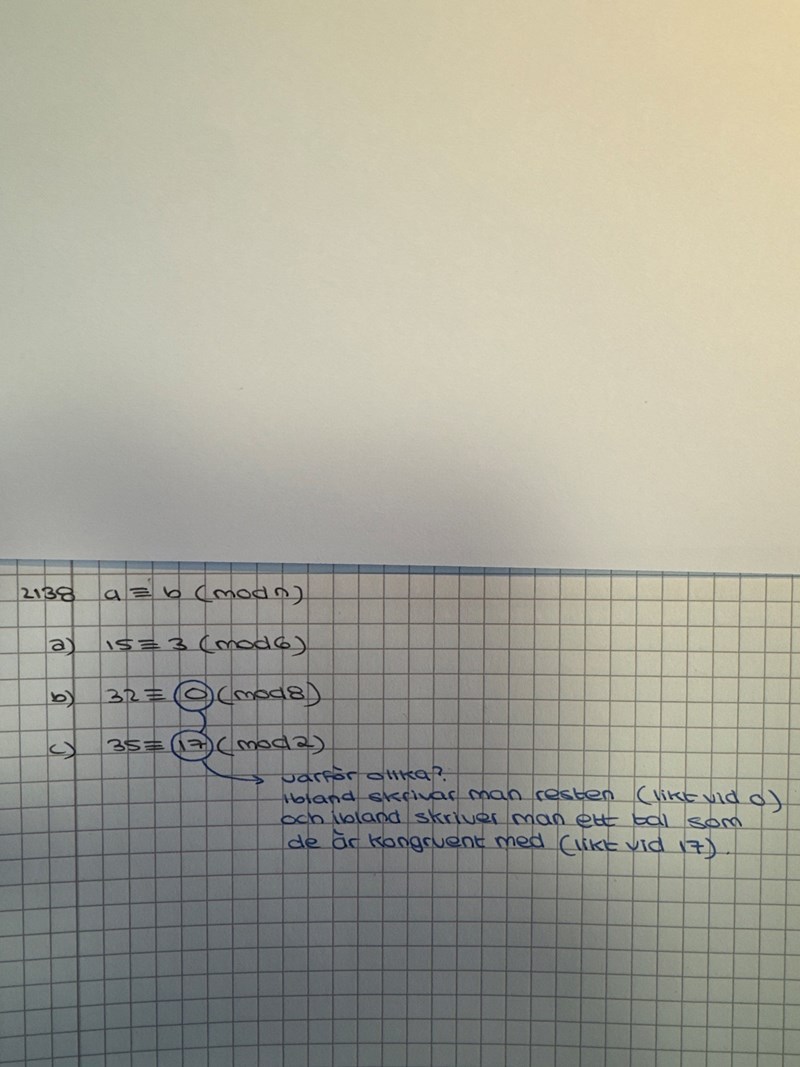 2138 a ≡ b (mod n)
a) 15 ≡ 3 (mod 6)
b) 32 ≡ 0 (mod 8)
c) 35 ≡ 17 (mod 2)
varför olika?
ibland skrivar man resten (likt vid 0)
och ibland skriver man ett tal som
de är kongruent med (likt vid 17).